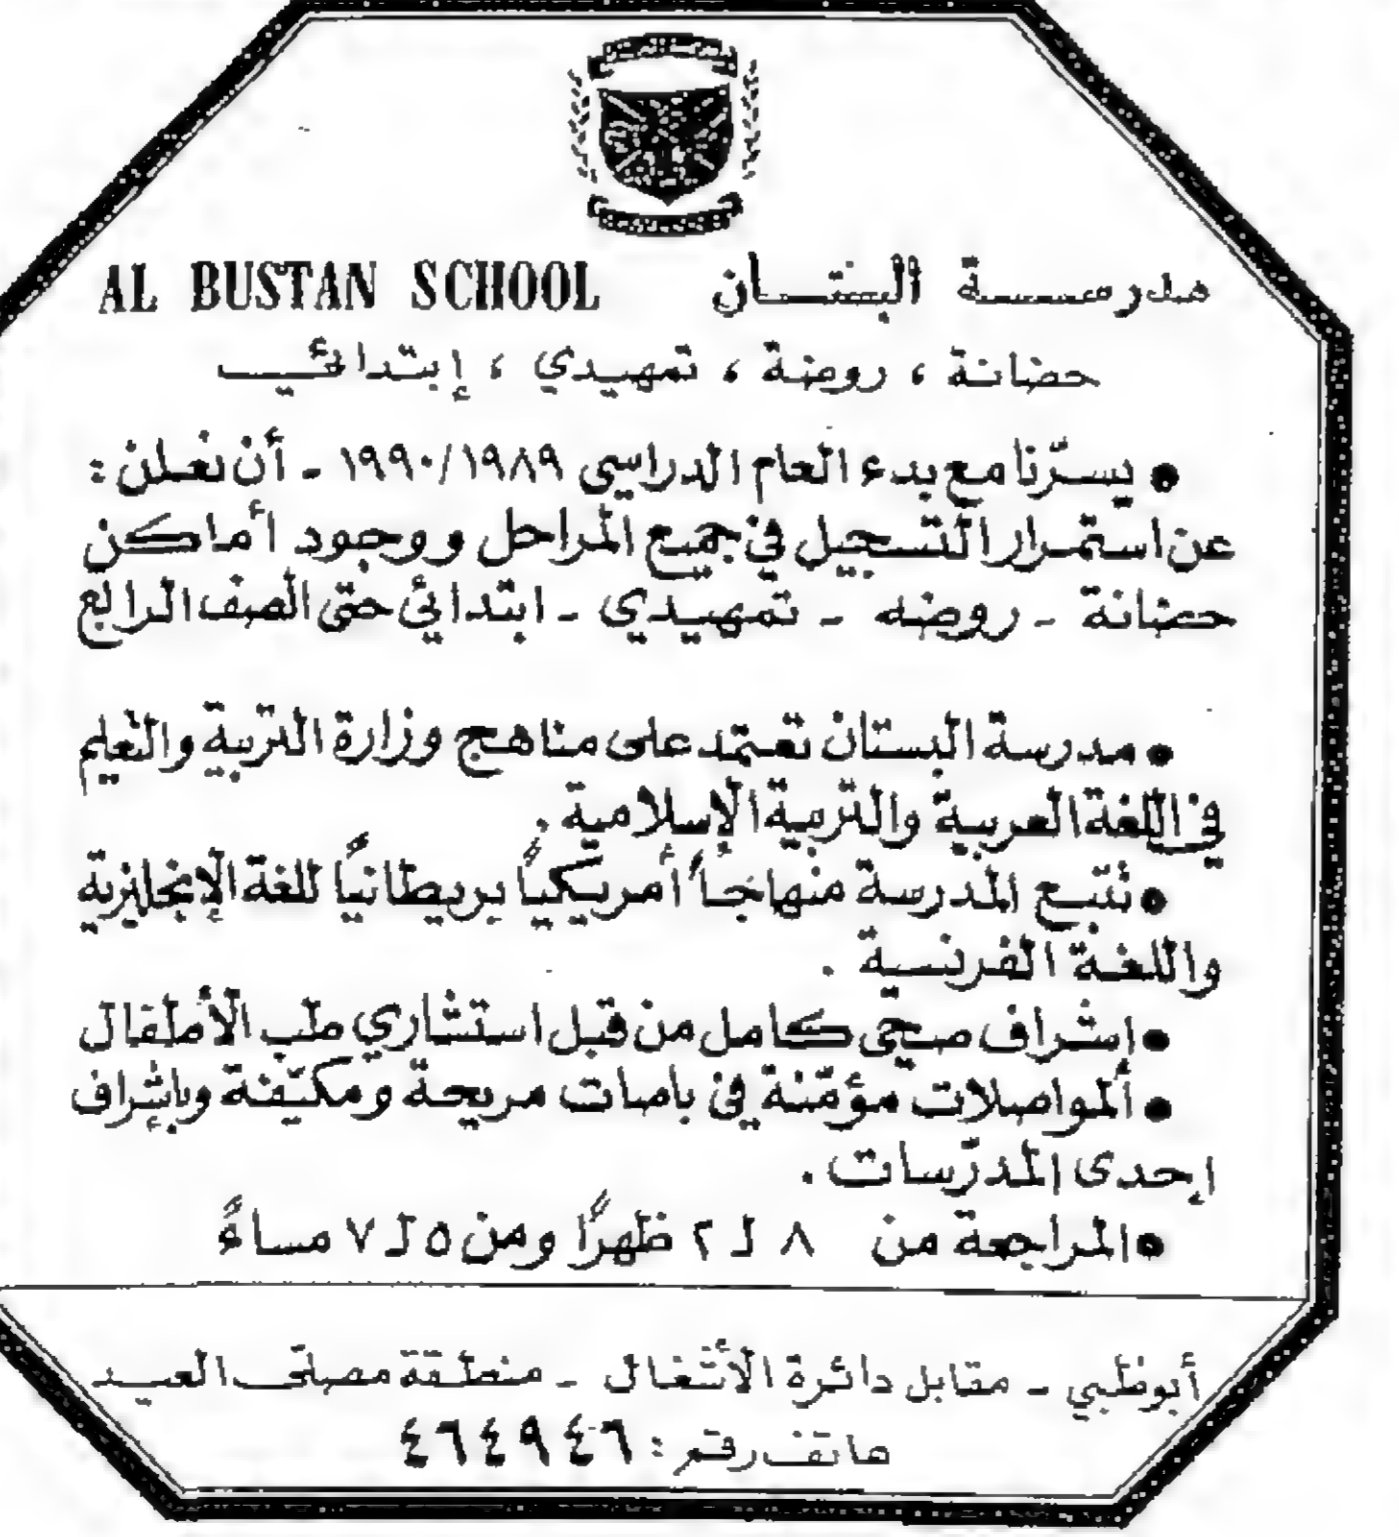 مدرسة البستان AL BUSTAN SCHOOL
حضانة ، روضة ، تمهيدي ، إبتدائي
• يسرّنا مع بدء العام الدراسي ١٩٨٩/١٩٩٠ - أن نعلن :
عن استمرار التسجيل في جميع المراحل ووجود أماكن
حضانة - روضه - تمهيدي - ابتدائي حتى الصف الرابع
• مدرسة البستان تعتمد على مناهج وزارة التربية والتعليم
في اللغة العربية والتربية الإسلامية .
• تتبع المدرسة منهاجاً أمريكياً بريطانياً للغة الإنجليزية
واللغة الفرنسية .
• اشراف صحي كامل من قبل استشاري طب الأطفال
• ألمواصلات مؤمّنة في باصات مريحة ومكيّفة وبإشراف
إحدى المدرّسات .
• المراجعة من ٨ لـ ٢ ظهراً ومن ٥ لـ ٧ مساءً
أبوظبي - مقابل دائرة الأشغال - منطقة مصلى العيد
هاتف رقم : ٤٦٤٩٤٦